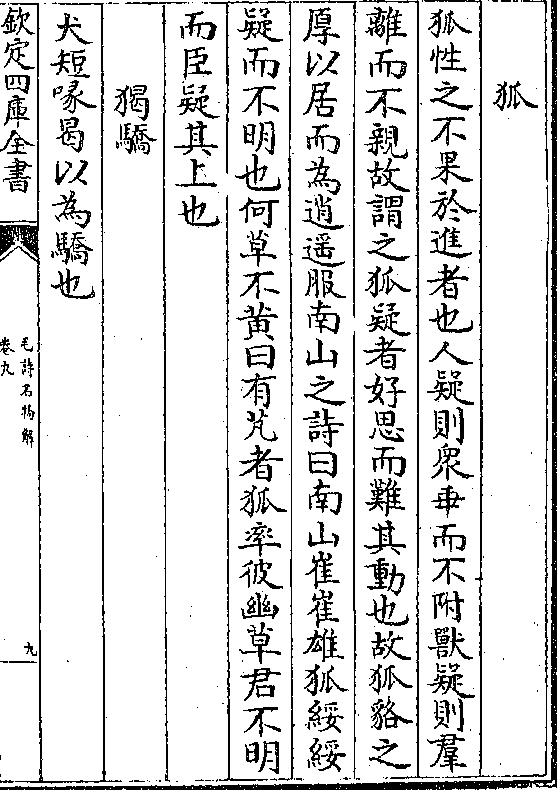 狐
狐性之不果於進者也人疑則衆乖而不附獸疑則羣
離而不親故謂之狐疑者好思而難其動也故狐貉之
厚以居而為逍遥服南山之詩曰南山崔崔雄狐綏綏
疑而不明也何草不黄曰有芃者狐率彼幽草君不明
而臣疑其上也
猲驕
犬短喙曷以為驕也
欽定四庫全書
毛詩名物解
卷九
九